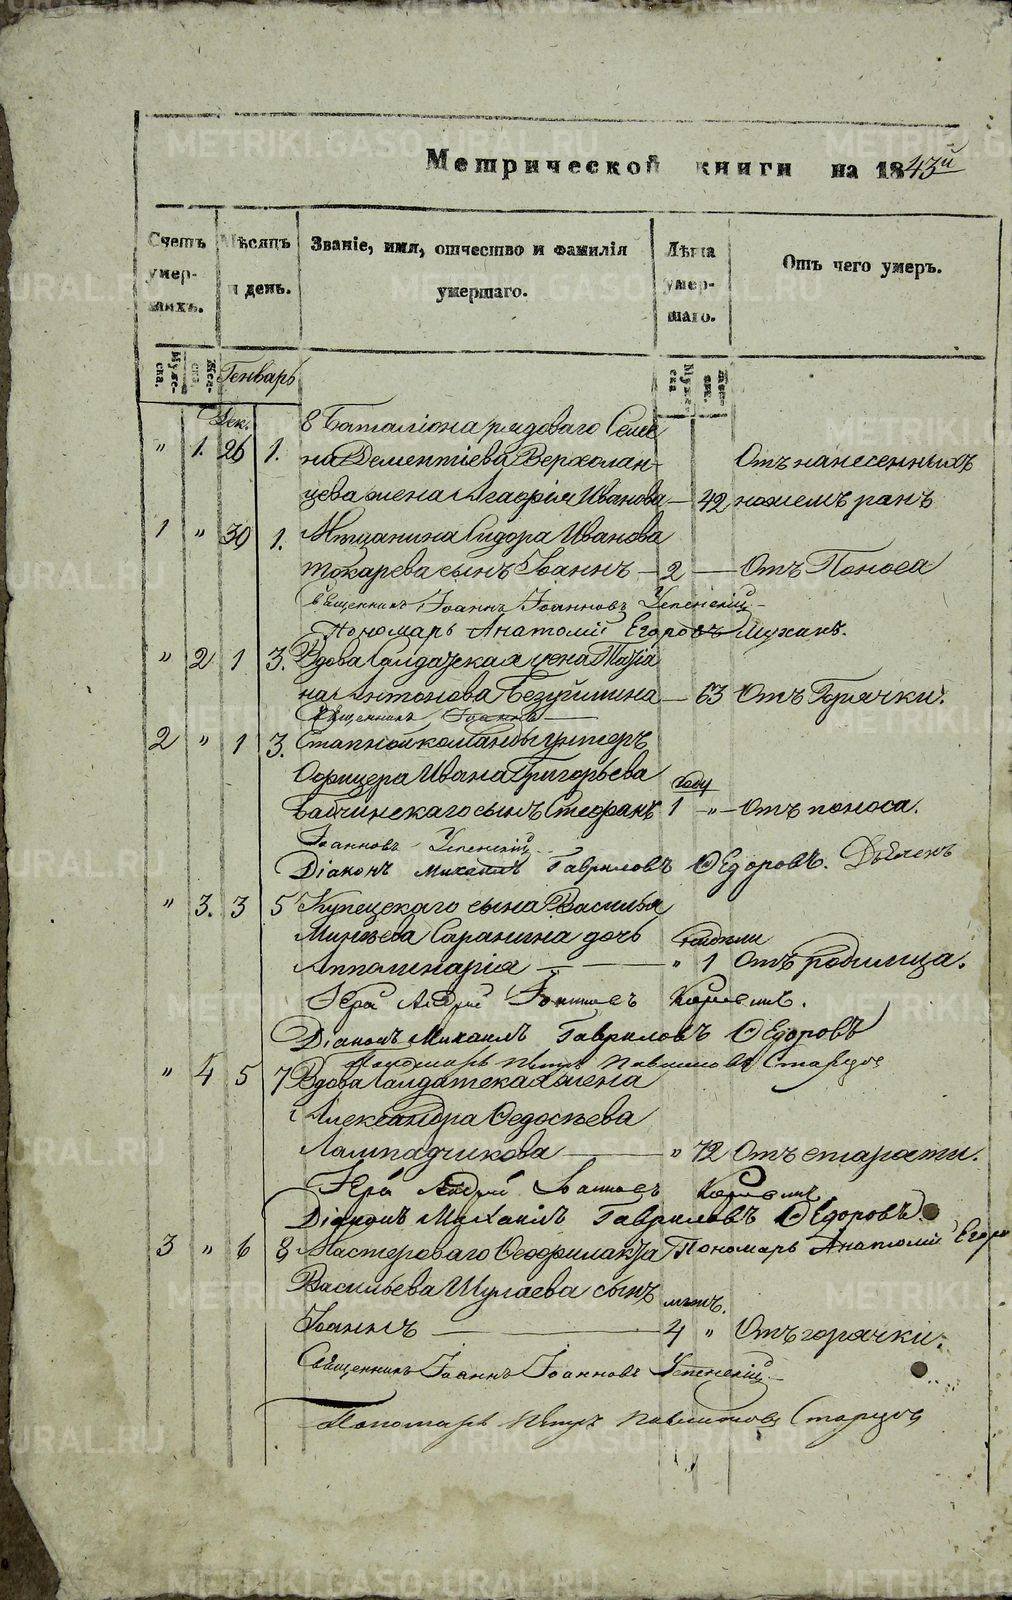 Метрической книги на 1843й
Счетъ умер- шихъ.
Мѣсяцъ и день.
Званіе, имя, отчество и фамилія умершаго.
Лѣта умер- шаго.
Отъ чего умеръ.
Муже- ска.
Жен- ска
Генварь
Муже- ска
Жен- ска.
Дек.
8 Баталіона рядоваго Семе
" 1. 26 1. на Дементіева Верхолан- Отъ нанесенныхъ
цева жена Агафія Иванова — 42 ножемъ ранъ
1 " 30 1. Мѣщанина Сидора Иванова
Токарева сынъ Іоаннъ — 2 — Отъ Поноса
Священникъ Іоаннъ Іоанновъ Успенскій
Пономарь Анатолій Егоровъ
" 2 1 3. Вдова Салдатская жена Татія
на Антонова — 63 Отъ Горячки.
Священникъ Іоаннъ
2 " 1 3. Етапной команды унтеръ
Офицера Ивана Григорьева
году
сынъ Стефанъ 1 " — Отъ поноса.
Іоанновъ Успенскій
Діаконъ Михаилъ Гавриловъ Ѳедоровъ.
" 3. 3 5 Купецкаго сына Василья
Минѣева Саранина дочь недѣли
Апполинарія — " 1 Отъ родимца.
Іерей Андрей Іоанновъ
Діаконъ Михаилъ Гавриловъ Ѳедоровъ
Пономарь Петръ
" 4 5 7 Вдова Салдатская жена
Александра Ѳедосѣева
Лампадчикова — " 72 Отъ старости.
Іерей Андрей Іоанновъ
Діаконъ Михаилъ Гавриловъ Ѳедоровъ.
3 " 6 8 Мастероваго Ѳеофилакта Пономарь Анатолій Егоро
Васильева Шулаева сынъ лѣтъ.
Іоаннъ — 4 " Отъ горячки.
Священникъ Іоаннъ Іоанновъ Успенскій
Пономарь Петръ
METRIKI.GASO-URAL.RU